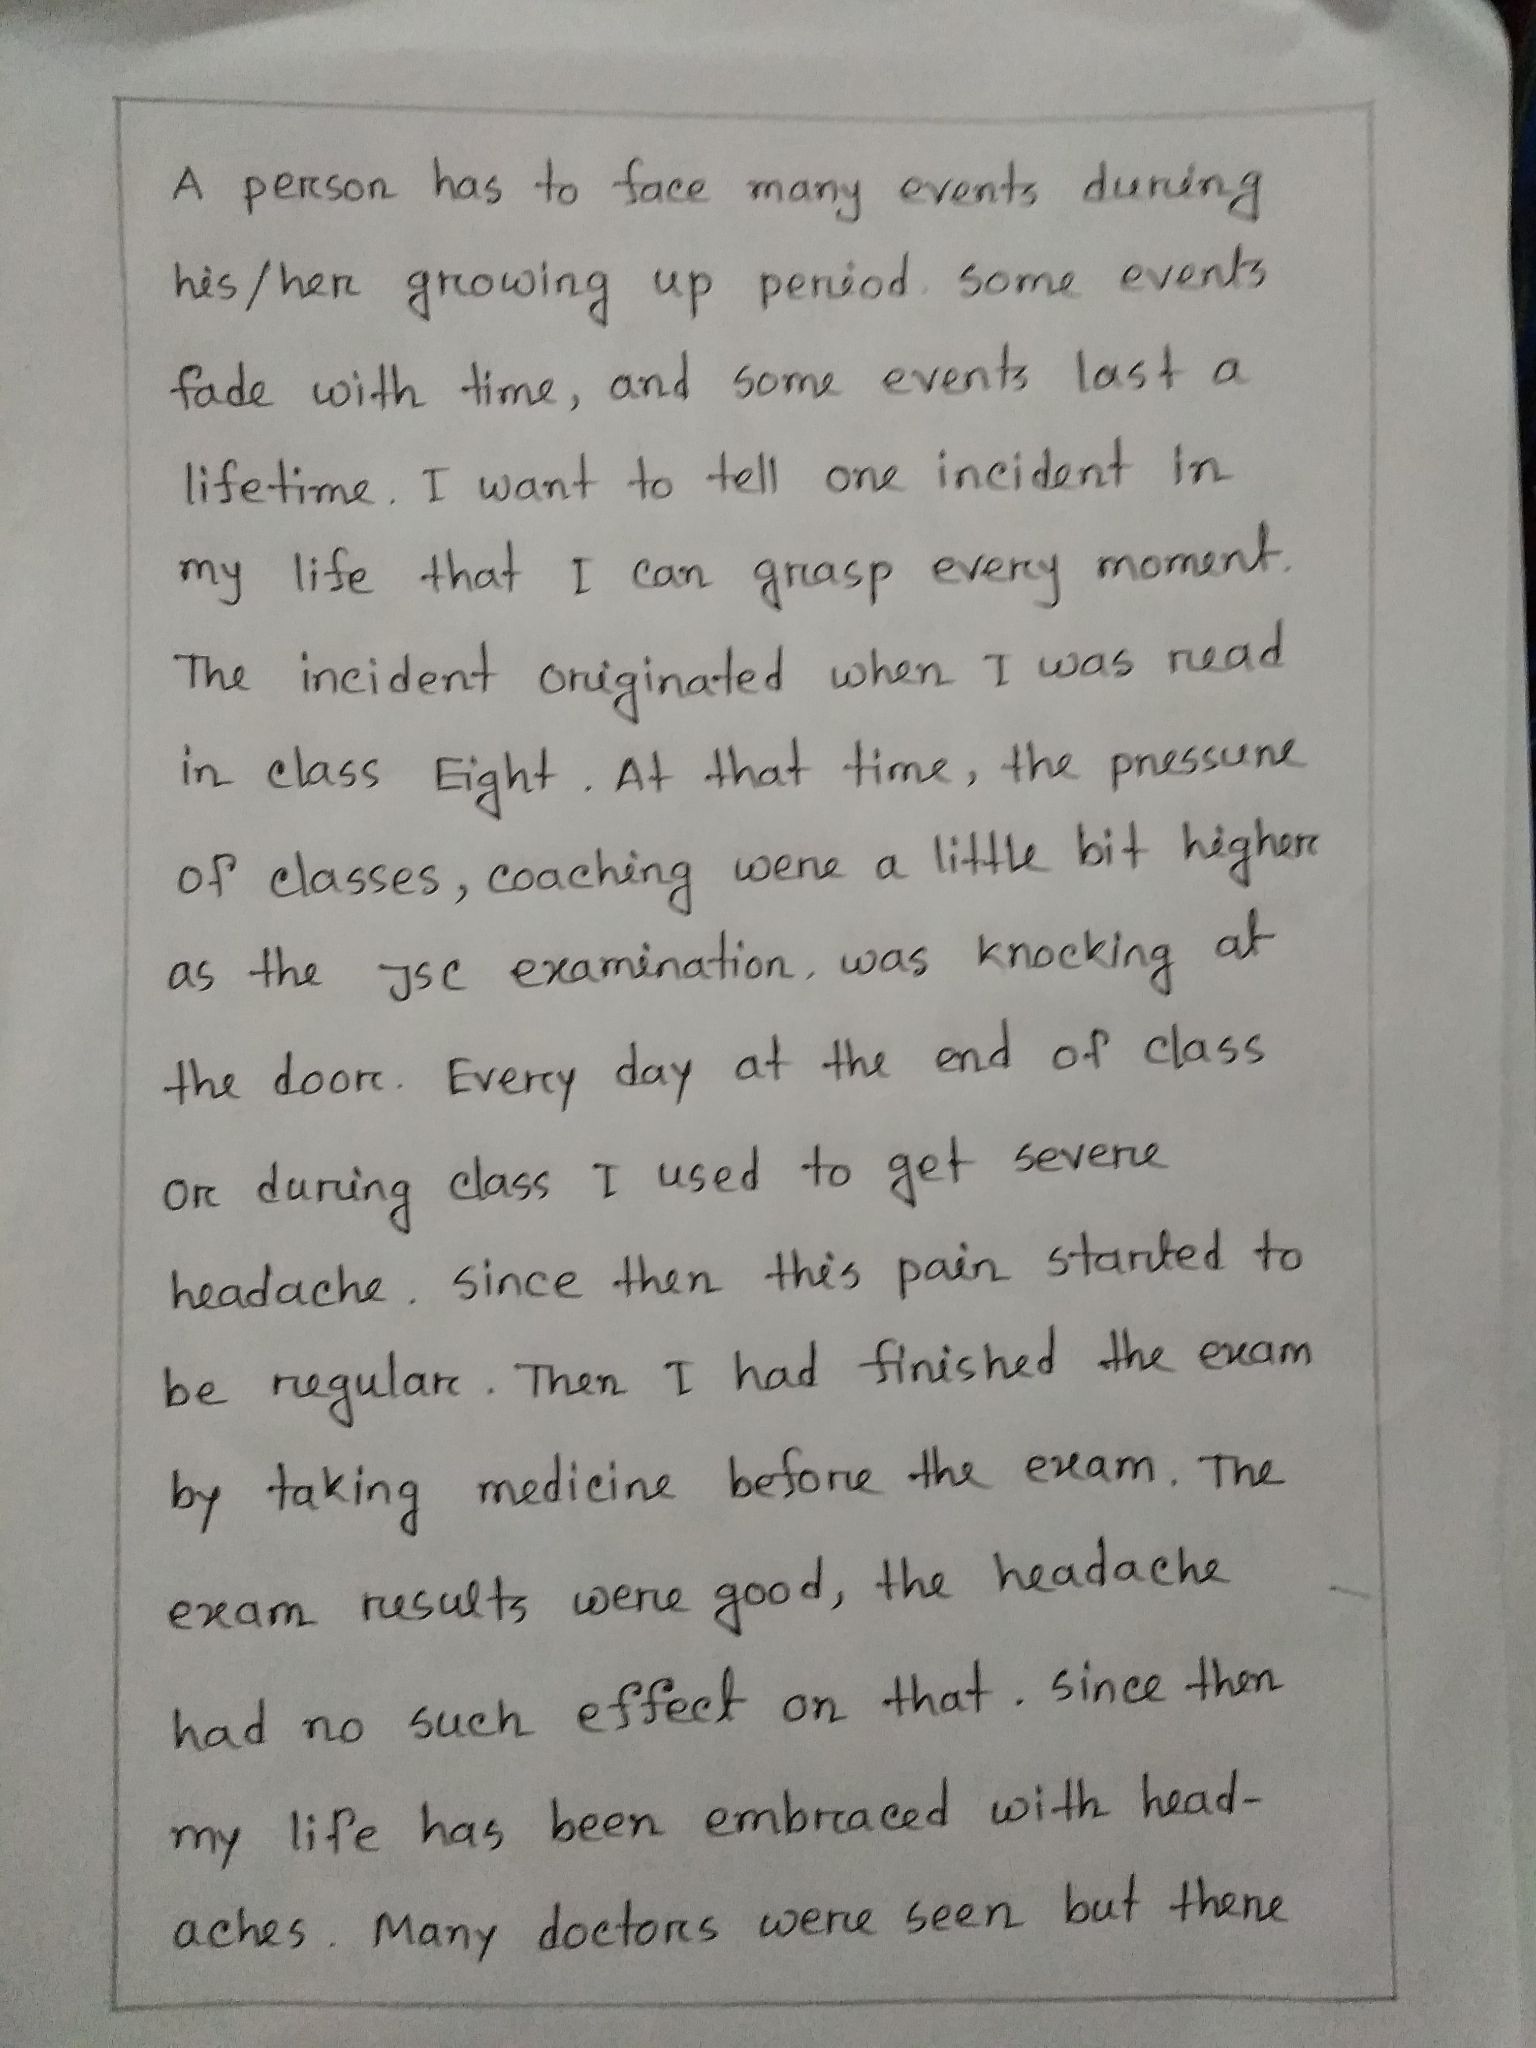 A person has to face many events during
his/her growing up period. Some events
fade with time, and some events last a
lifetime. I want to tell one incident in
my life that I can grasp every moment.
The incident originated when I was read
in class Eight. At that time, the pressure
of classes, coaching were a little bit higher
as the JSC examination. was knocking at
the door. Every day at the end of class
or during class I used to get severe
headache. Since then this pain started to
be regular. Then I had finished the exam
by taking medicine before the exam. The
exam results were good, the headache
had no such effect on that. Since then
my life has been embraced with head-
aches. Many doctors were seen but there